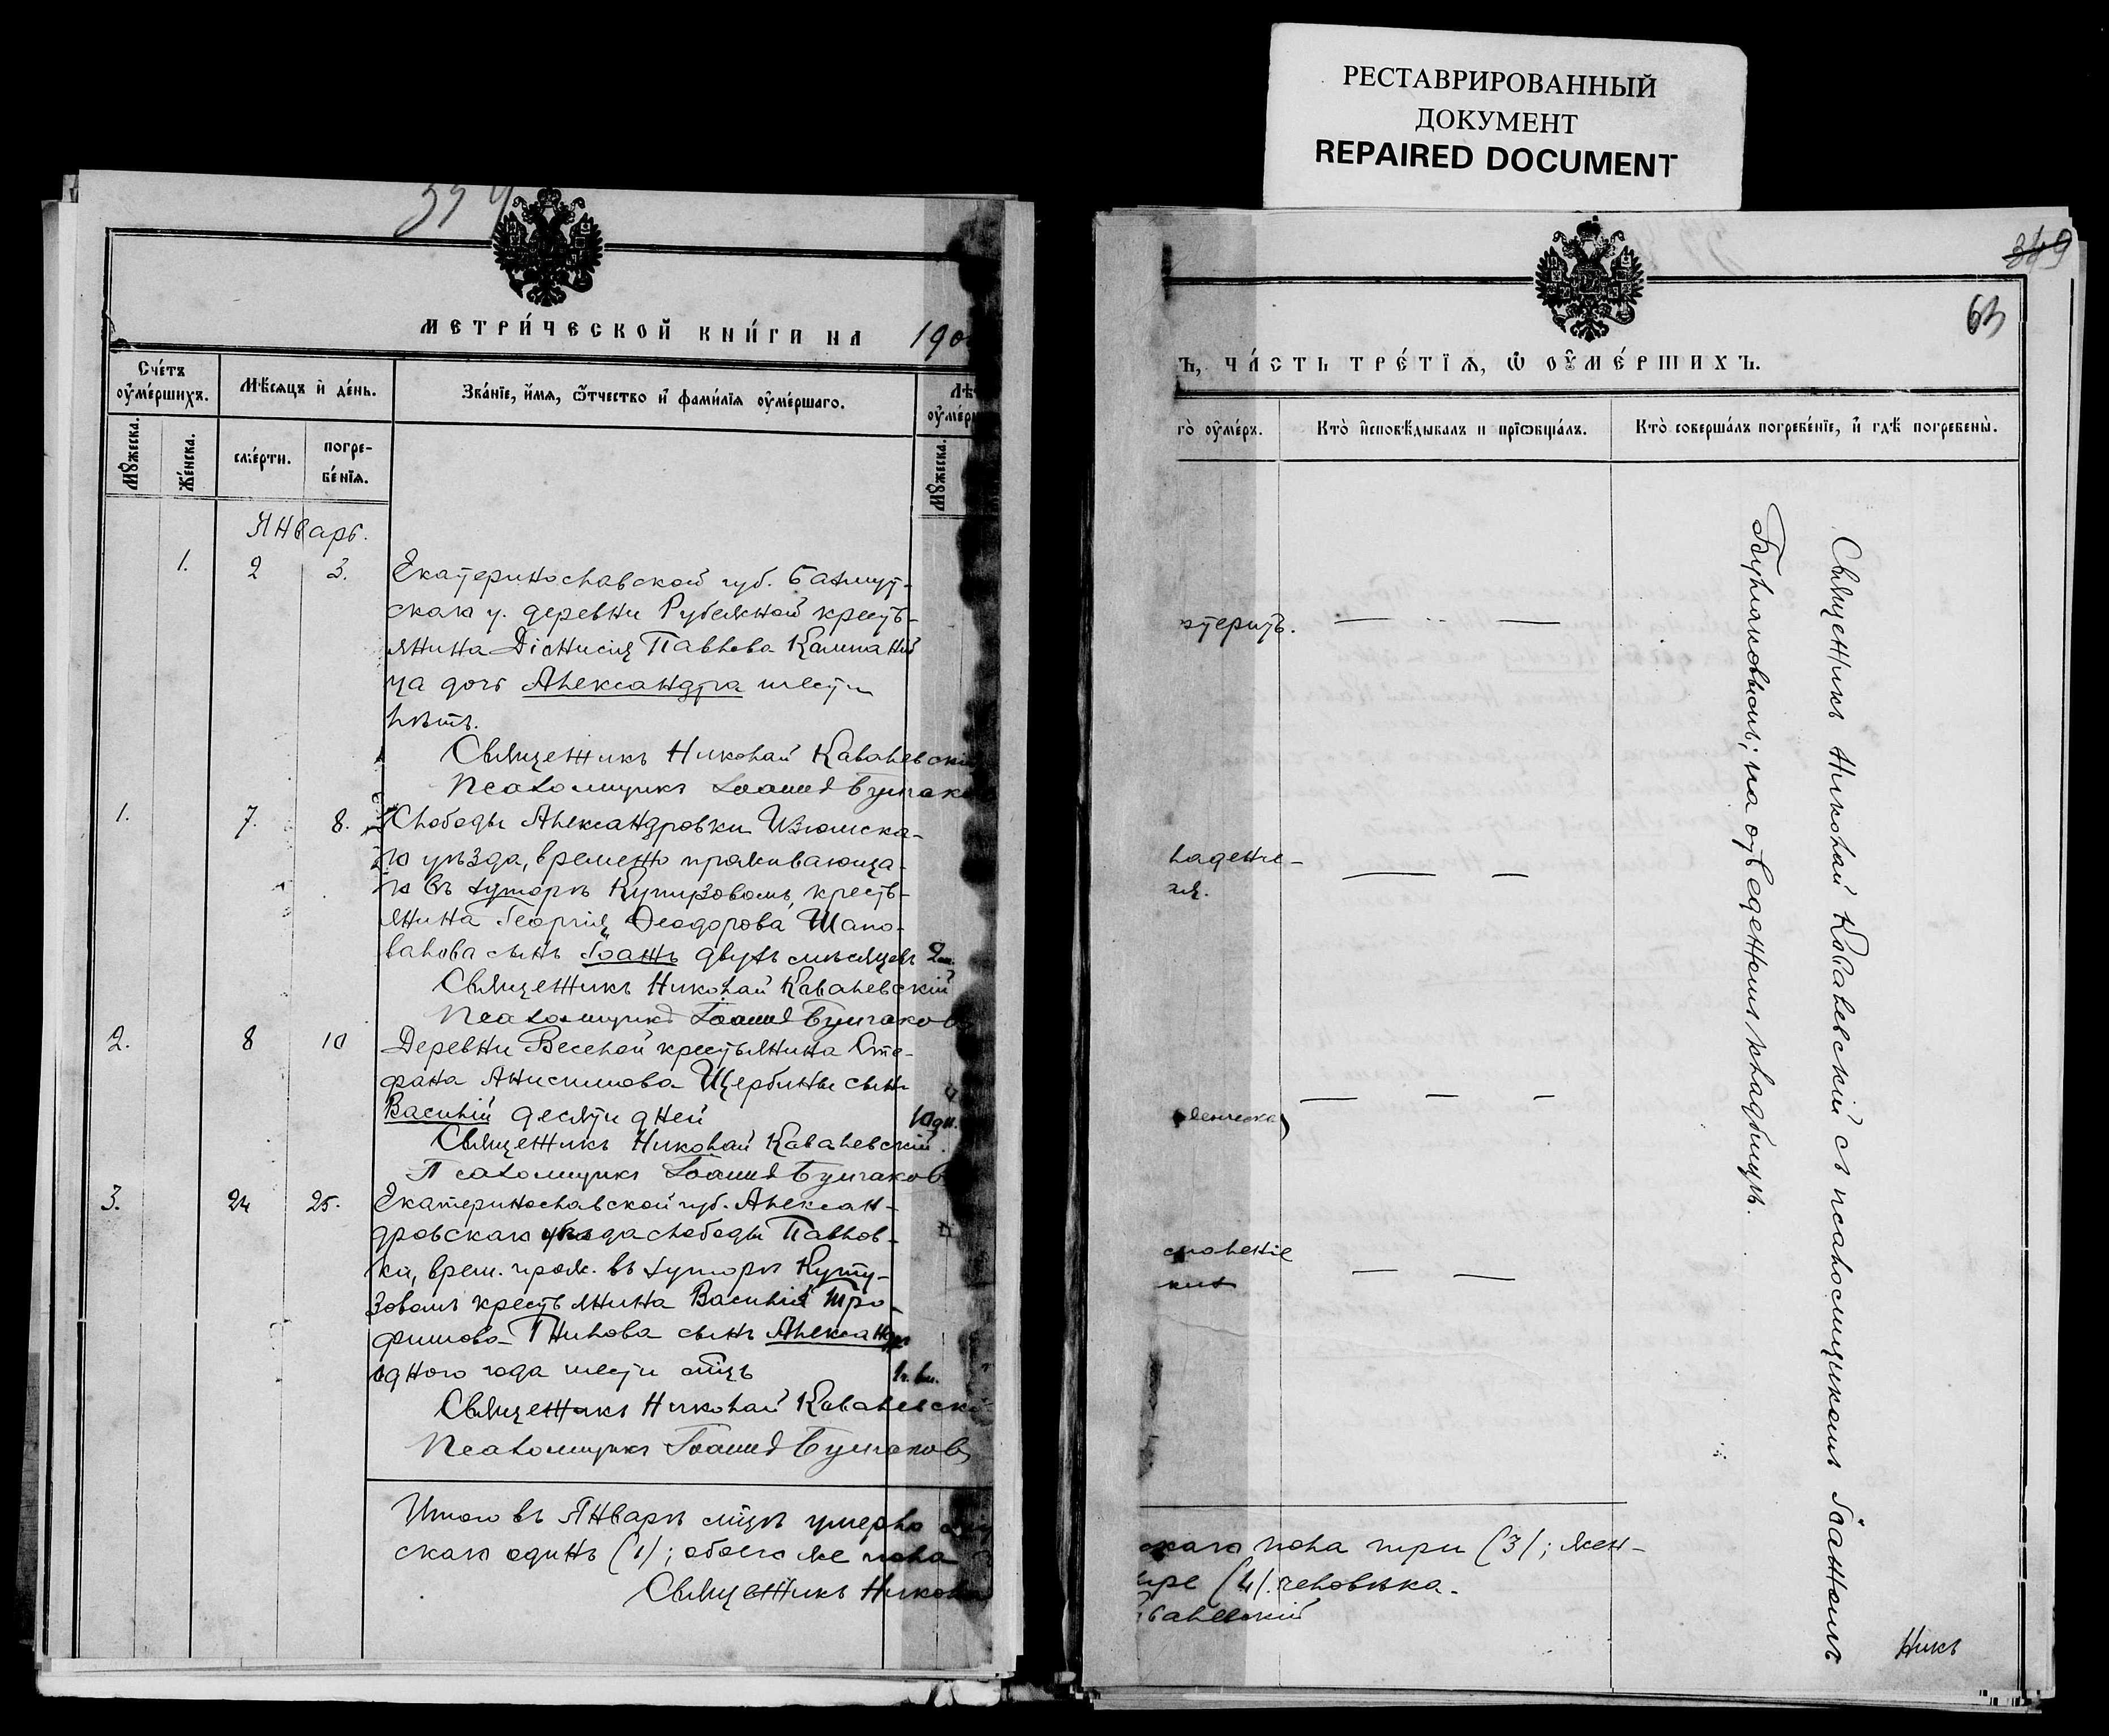 РЕСТАВРИРОВАННЫЙ
ДОКУМЕНТ
REPAIRED DOCUMENT
МЕТРИ́ЧЕСКОЙ КНИ́ГИ НА 190
Сче́тъ оу҆ме́ршихъ.
Мѣ́сяцъ и҆ де́нь.
Зва́нїе, и҆́мя, ѻ҆́тчество и҆ фами́лїя оу҆ме́ршаго.
Мꙋжеска.
Же́нска.
сме́рти.
погре-
бе́нїя.
Мꙋжеска.
Январь.
1. 2 3. Екатеринославской губ. Бахмут-
скаго у. деревни Рубежной кресть-
янина Діонисія Павлова Компаній
ца дочь Александра шести
лѣтъ.
Священникъ Николай Ковалевскі
Псаломщикъ Іоаннъ Булгако
1. 7. 8. Слободы Александровки Изюмска-
го уѣзда, временно проживающа-
го въ хуторѣ Кутузовомъ, кресть-
янина Георгія Ѳеодорова Шапо-
валова сынъ Іоаннъ двухъ мѣсяцевъ 2 м.
Священникъ Николай Ковалевскій
Псаломщикъ Іоаннъ Булгаковъ
2. 8 10 Деревни Веселой крестьянина Сте-
фана Анисимова Щербины сынъ
Василій десяти дней 10 дн.
Священникъ Николай Ковалевскій.
Псаломщикъ Іоаннъ Булгаковъ
3. 24 25. Екатеринославской губ. Алексан-
дровскаго уѣзда слободы Павлов-
ки, врем. прож. въ хуторѣ Куту-
зовомъ крестьянина Василія Тро-
фимова Гнилова сынъ Александръ
одного года шести мѣсцъ 1 г. 6 м.
Священникъ Николай Ковалевскі
Псаломщикъ Іоаннъ Булгаковъ
Итого въ Январѣ мѣсцѣ умерло
скаго одинъ (1); обоего же пола
Священникъ Никола
349
63
ъ, ЧА́СТЬ ТРЕ́ТЇѦ, Ѡ҆ ОУ҆МЕ́РШИХЪ.
гѡ̀ оу҆ме́ръ.
Кто̀ и҆сповѣ́дывалъ и прїѡбща́лъ.
Кто̀ соверша́лъ погребе́нїе, и҆ гдѣ̀ погребены̀.
терить.
ладенче-
ская.
скаго пола три (3); жен-
ыре (4) человѣка.
овалевскій
Священникъ Николай Ковалевскій съ псаломщикомъ Іоанномъ
Булгаковымъ; на отведенномъ кладбищѣ.
никъ